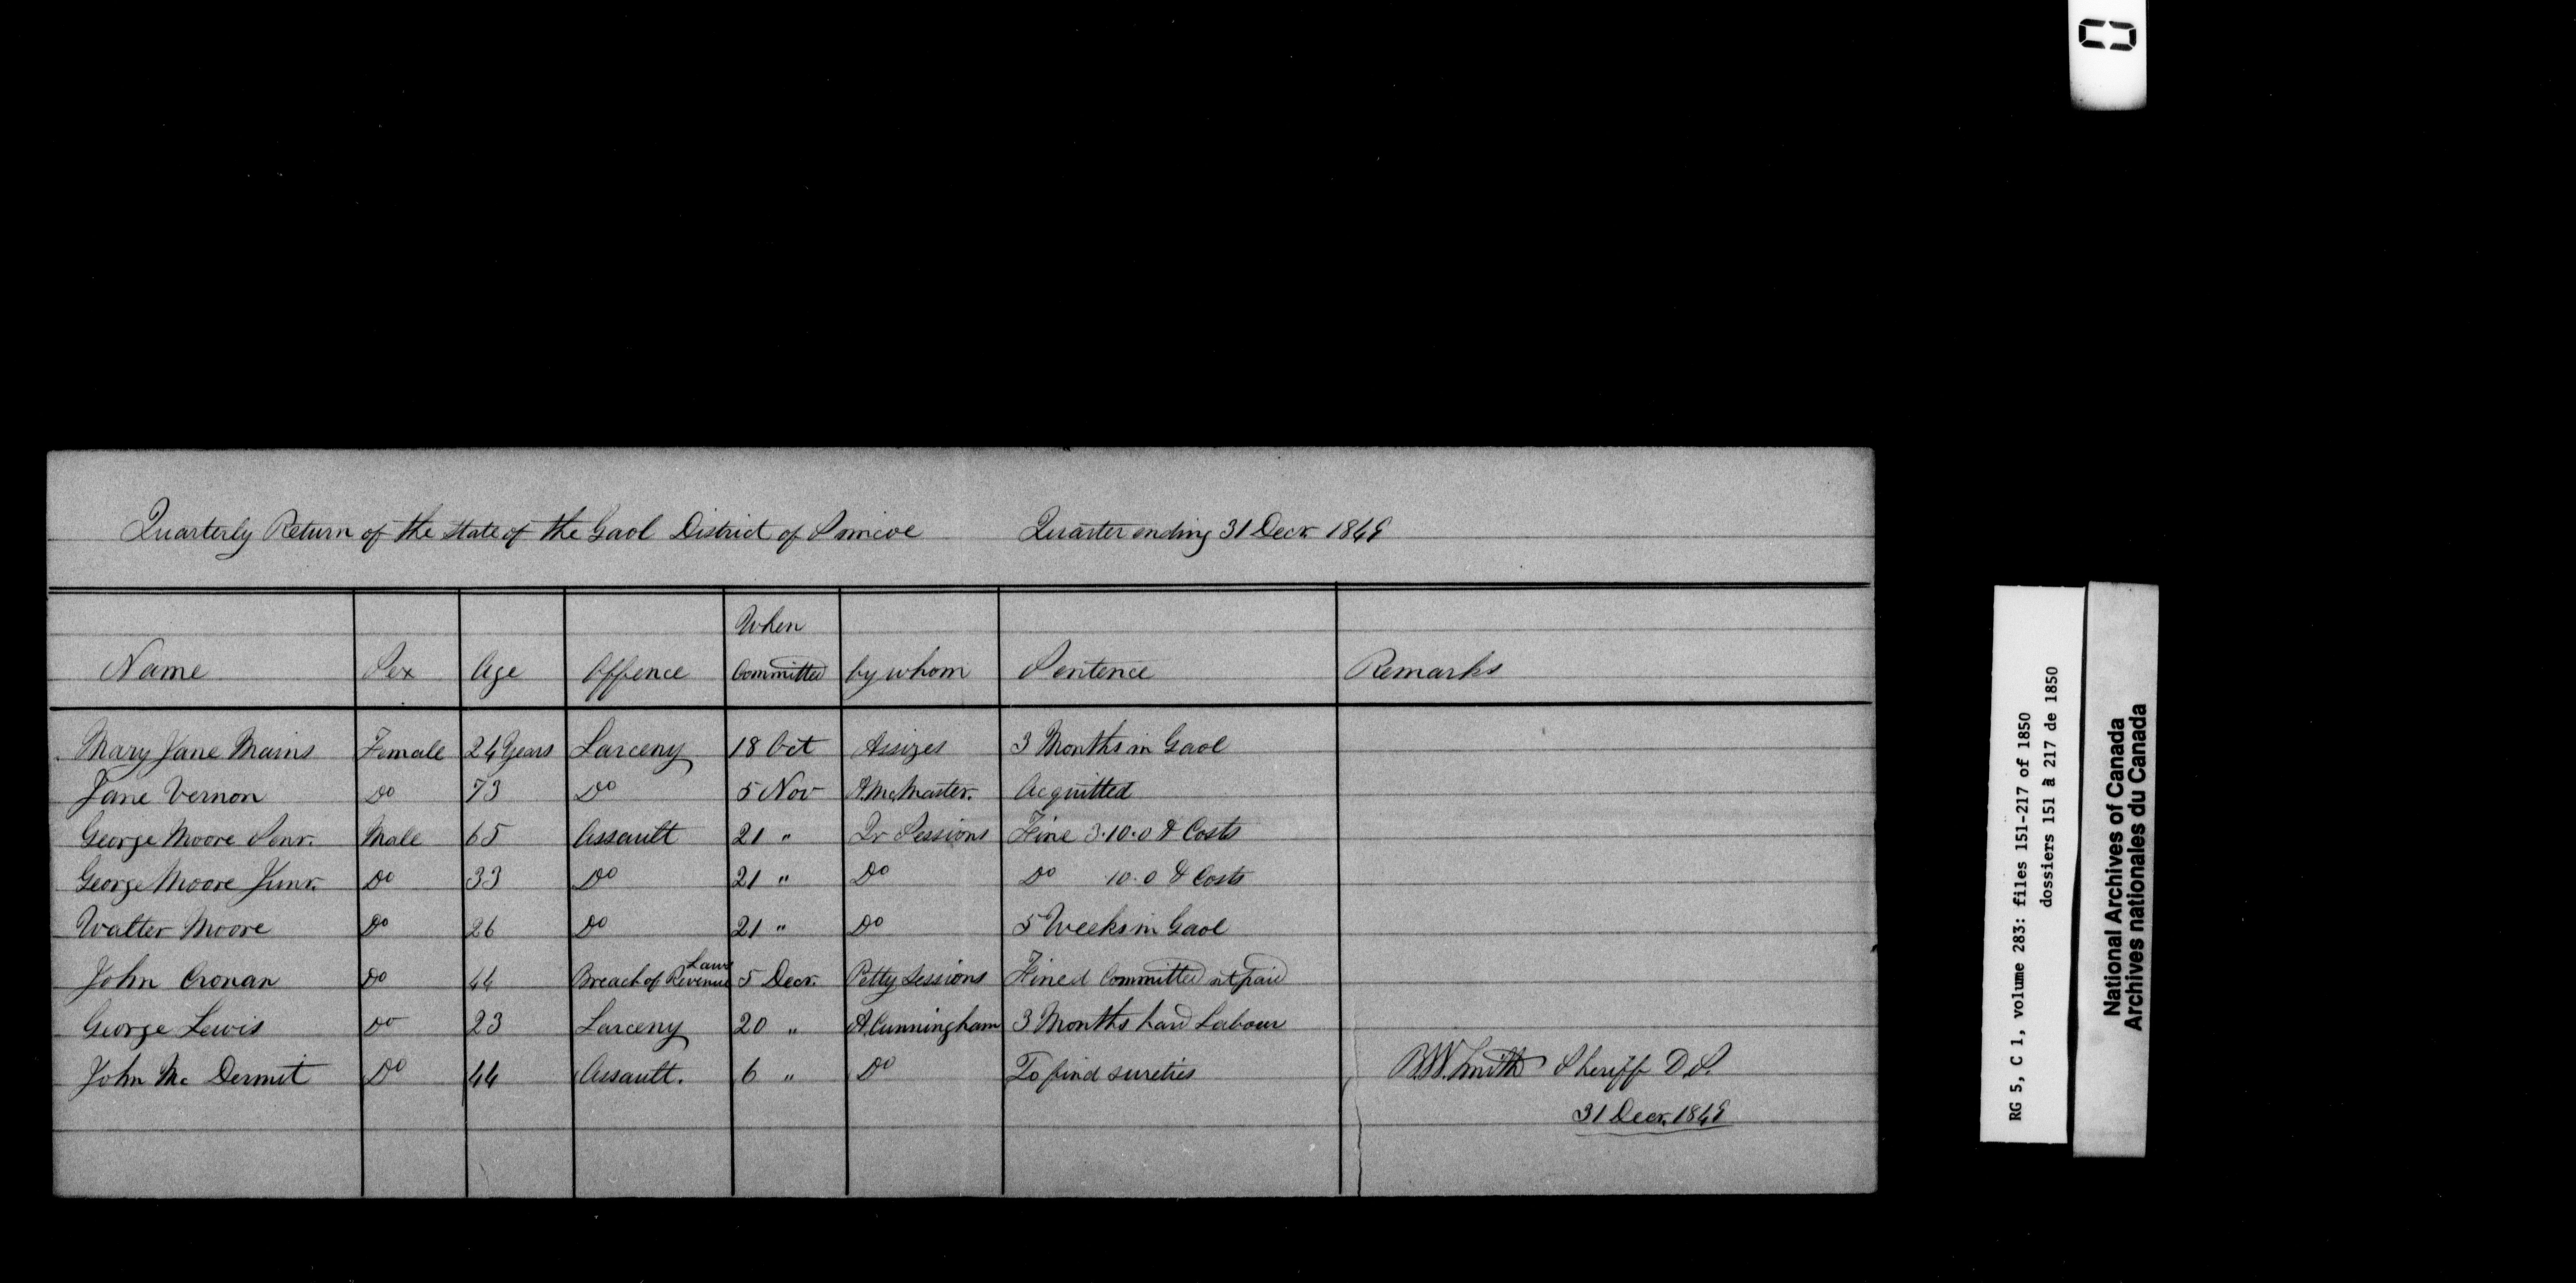 Quarterly Return of the State of the Gaol District of Simcoe Quarter ending 31 Decr 1849
Name Sex Age Offence When Committed by whom Sentence Remarks
Mary Jane Mains Female 24 Years Larceny 18 Oct Assizes 3 Months in Gaol
Jane Vernon Do 73 Do 5 Nov A. McMaster. Acquitted
George Moore Senr. Male 65 Assault 21 " Qr Sessions Fine 3.10.0 & Costs
George Moore Junr. Do 33 Do 21 " Do Do 10.0 & Costs
Walter Moore Do 26 Do 21 " Do 5 Weeks in Gaol
John Cronan Do 44 Breach of Revenue Laws 5 Decr. Petty Sessions Fined Committed nt paid
George Lewis Do 23 Larceny 20 " A. Cunningham 3 Months hard Labour
John Mc Dermit Do 44 Assault. 6 " Do To find sureties
B.W. Smith Sheriff D.S.
31 Decr. 1849
RG 5, C 1, volume 283: files 151-217 of 1850
dossiers 151 à 217 de 1850
National Archives of Canada
Archives nationales du Canada